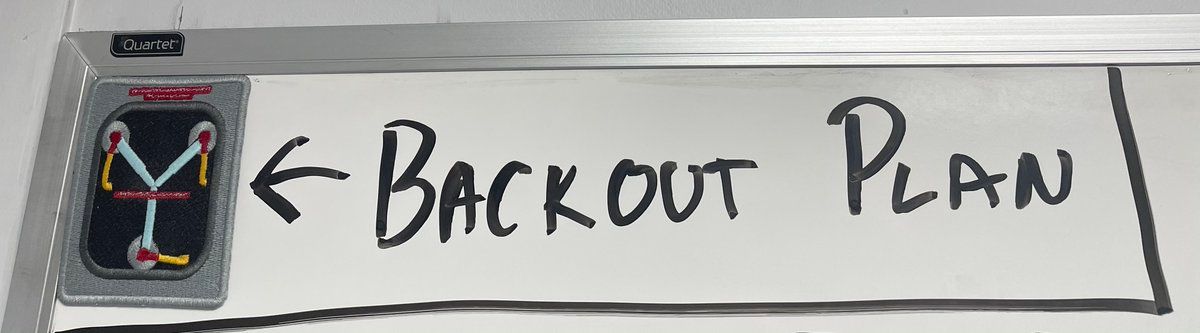 Quartet
← BACKOUT PLAN